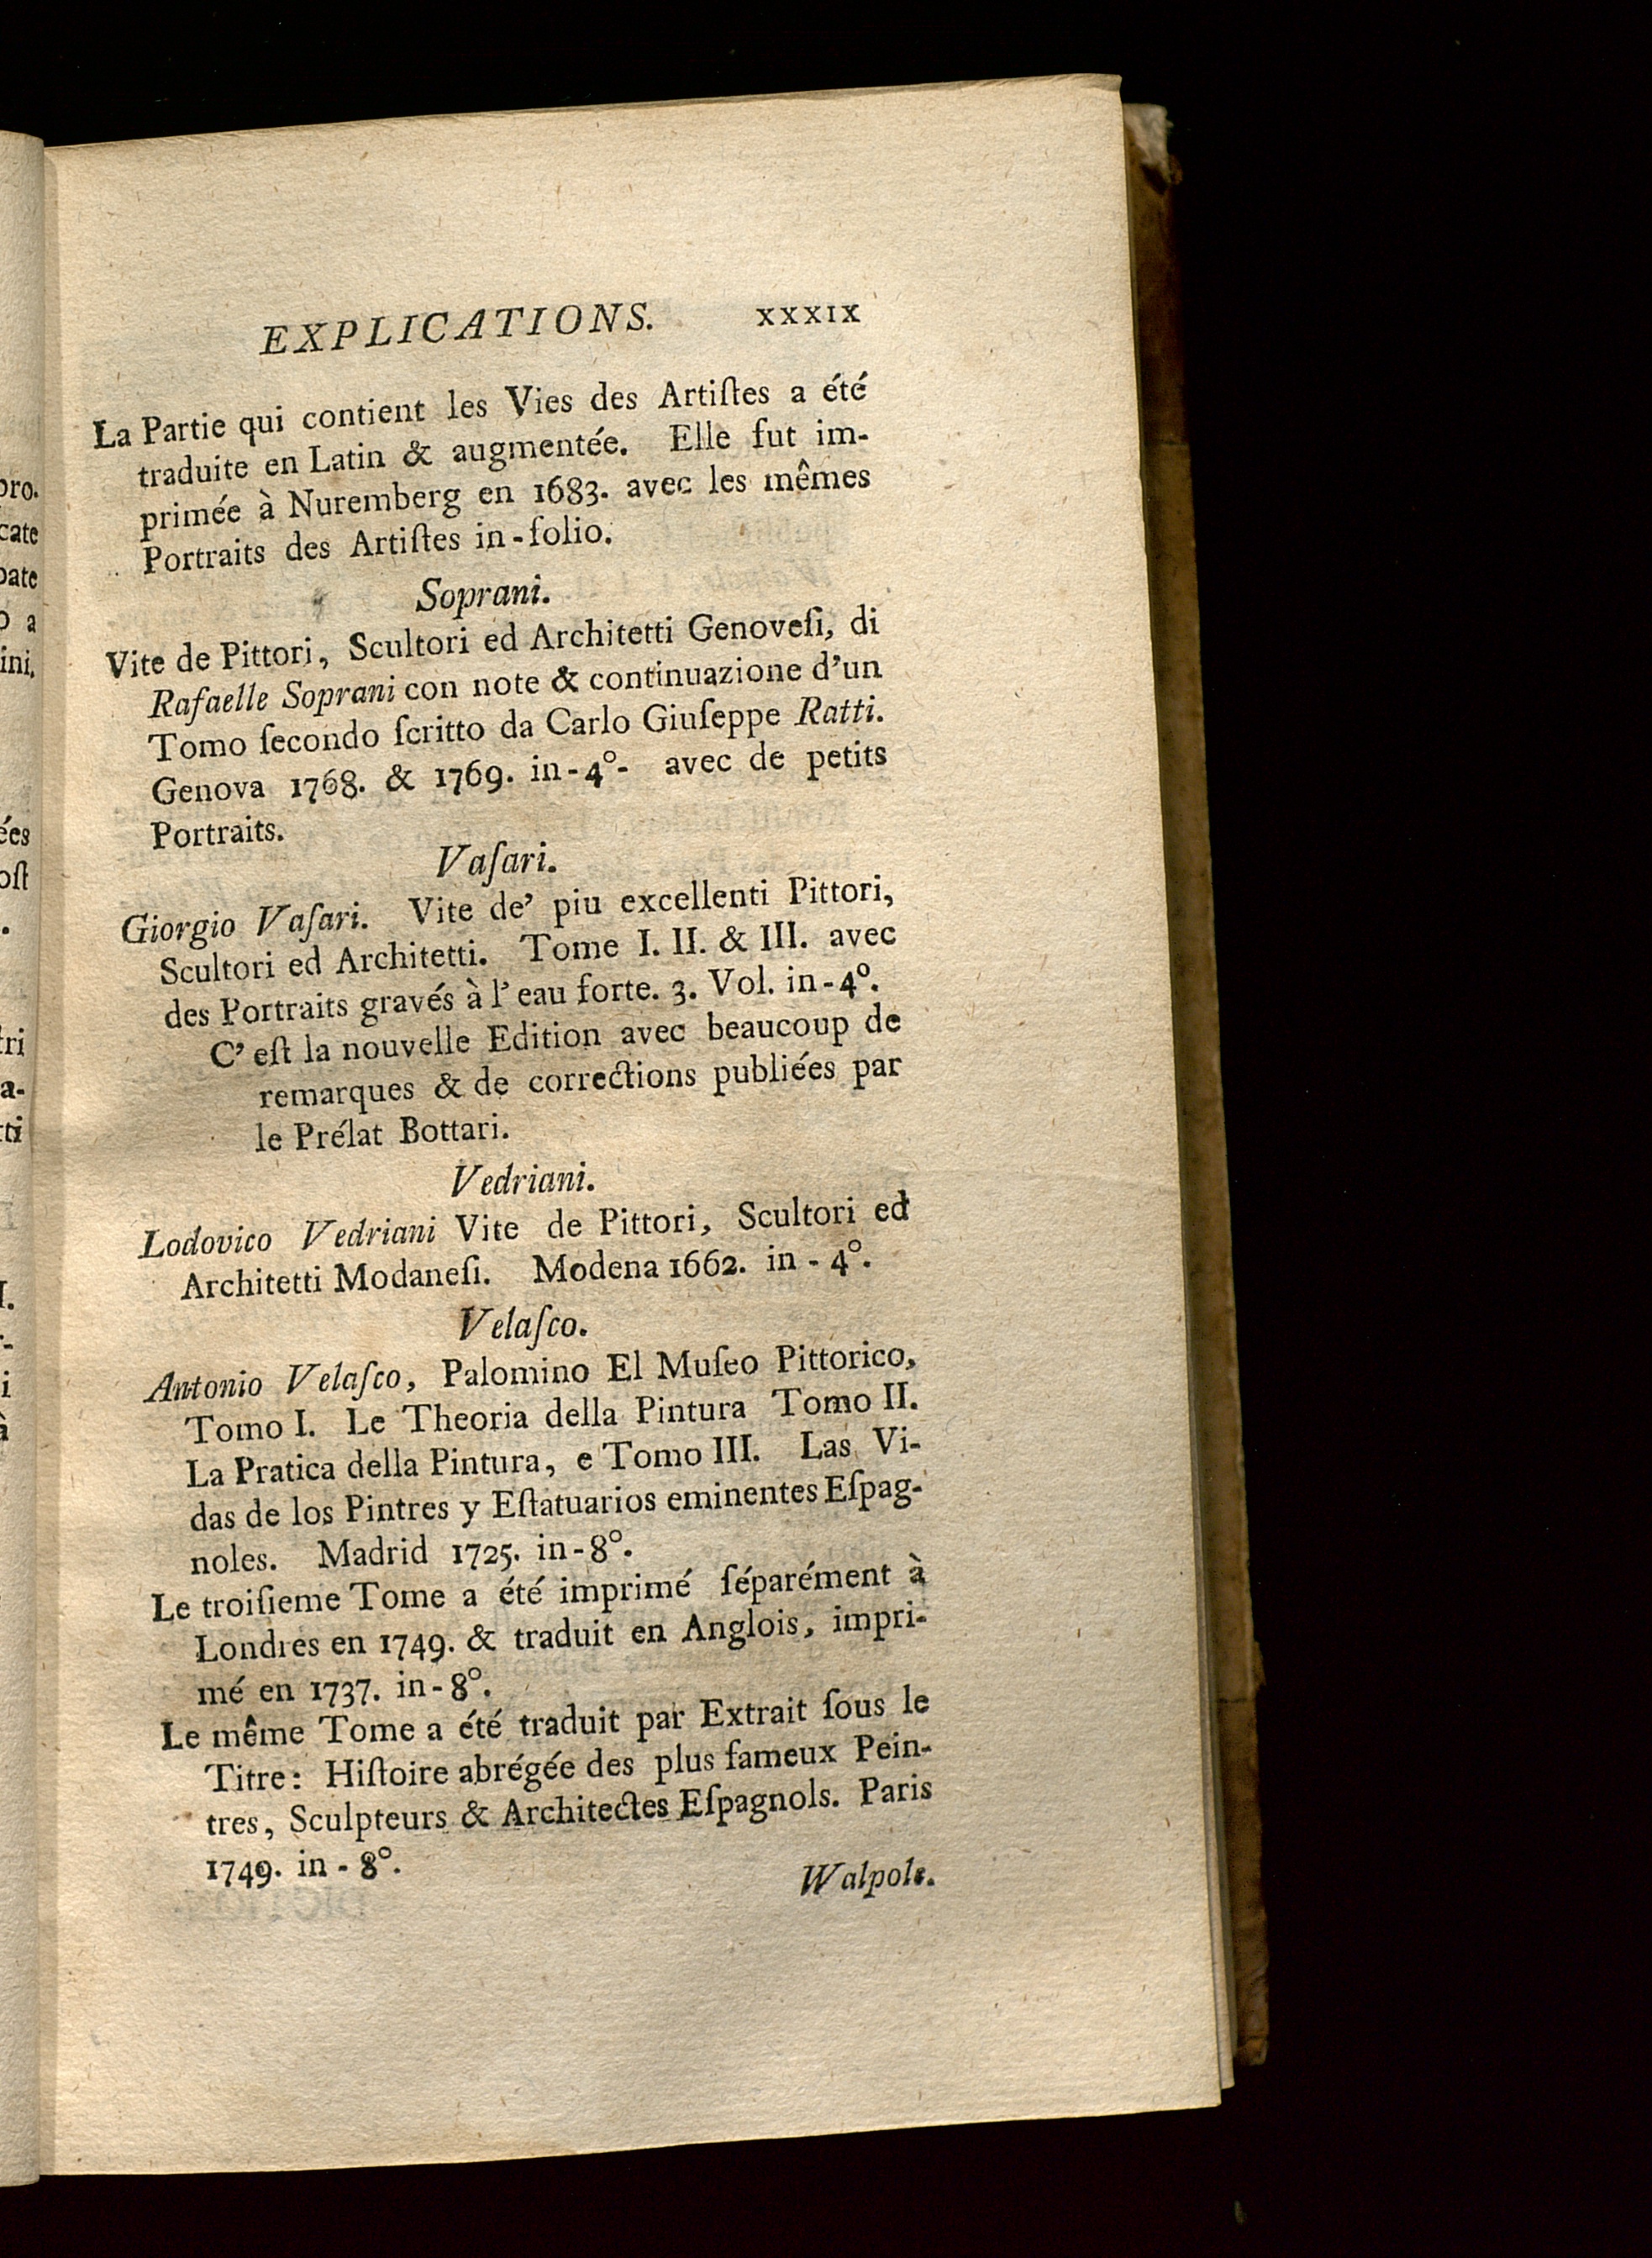 EXPLICATIONS. XXXIX
La Partie qui contient les Vies des Artiſtes a été
traduite en Latin & augmentée. Elle fut im-
primée à Nuremberg en 1683. avec les mêmes
Portraits des Artiſtes in-folio.
Soprani.
Vite de Pittori, Scultori ed Architetti Genoveſi, di
Rafaelle Soprani con note & continuazione d'un
Tomo ſecondo ſcritto da Carlo Giuſeppe Ratti.
Genova 1768. & 1769. in-4°- avec de petits
Portraits.
Vaſari.
Giorgio Vaſari. Vite de' piu excellenti Pittori,
Scultori ed Architetti. Tome I. II. & III. avec
des Portraits gravés à l'eau forte. 3. Vol. in-4°.
C'eſt la nouvelle Edition avec beaucoup de
remarques & de corrections publiées par
le Prélat Bottari.
Vedriani.
Lodovico Vedriani Vite de Pittori, Scultori ed
Architetti Modaneſi. Modena 1662. in-4°.
Velaſco.
Antonio Velaſco, Palomino El Muſeo Pittorico,
Tomo I. Le Theoria della Pintura Tomo II.
La Pratica della Pintura, e Tomo III. Las Vi-
das de los Pintres y Eſtatuarios eminentes Eſpag-
noles. Madrid 1725. in-8°.
Le troiſieme Tome a été imprimé ſéparément à
Londres en 1749. & traduit en Anglois, impri-
mé en 1737. in-8°.
Le même Tome a été traduit par Extrait ſous le
Titre: Hiſtoire abrégée des plus fameux Pein-
tres, Sculpteurs & Architectes Eſpagnols. Paris
1749. in-8°.
Walpole.